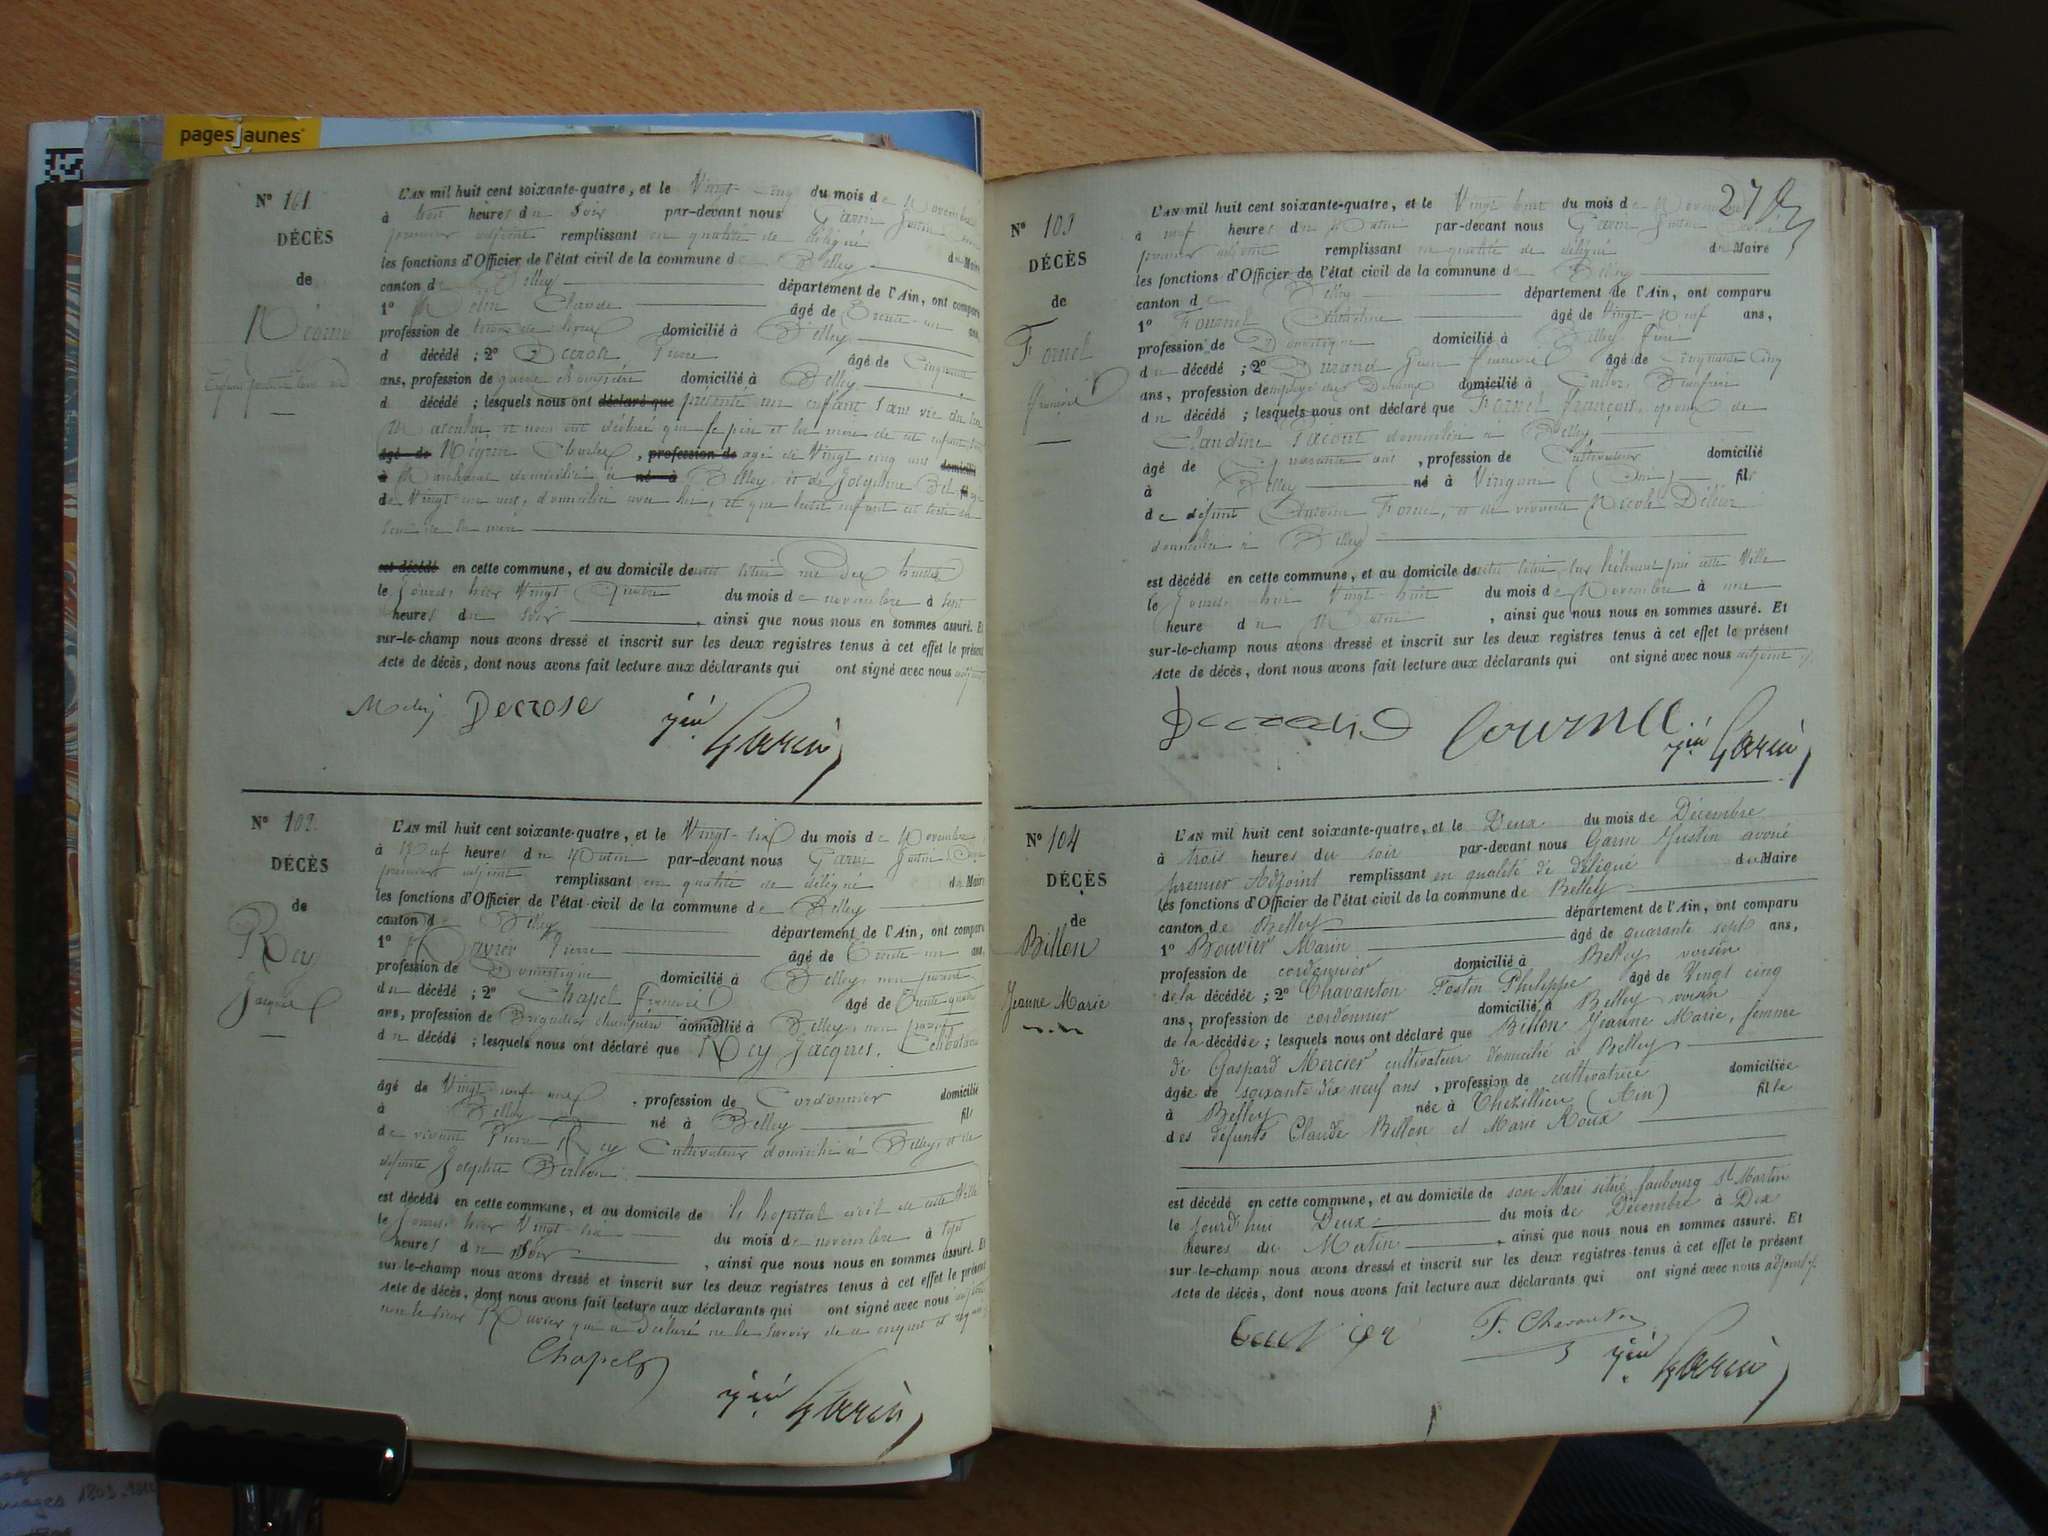 pagesjaunes
N° 101
DÉCÈS
de
Négrin
L'AN mil huit cent soixante-quatre, et le Vingt-cinq du mois de Novembre
à trois heures du Soir par-devant nous Garin Justin
premier adjoint remplissant en qualité de délégué du Maire
les fonctions d'Officier de l'état civil de la commune de Belley
canton de Belley département de l'Ain, ont comparu
1° Melin Claude âgé de Trente-un ans,
profession de domicilié à Belley
d décédé ; 2° Decrose Pierre âgé de Cinquante
ans, profession de garde domicilié à Belley
d décédé ; lesquels nous ont déclaré que présenté un enfant sans vie du sexe
Masculin et nous ont déclaré que le père et la mère de cet enfant sont
âgé de Négrin Charles, profession de âgé de Vingt cinq ans domicilié
à Marchand domicilié à né à Belley et de Joséphine
de Vingt-un ans, domiciliée avec lui, et que ledit enfant est sorti du
sein de sa mère
est décédé en cette commune, et au domicile de
le Jourd hier Vingt-Quatre du mois de novembre à sept
heures du soir, ainsi que nous nous en sommes assuré. Et
sur-le-champ nous avons dressé et inscrit sur les deux registres tenus à cet effet le présent
Acte de décès, dont nous avons fait lecture aux déclarants qui ont signé avec nous adjoint
Decrose Jin Garin
N° 102
DÉCÈS
de
Rey
Jacques
L'AN mil huit cent soixante-quatre, et le Vingt-six du mois de Novembre
à Neuf heures du Matin par-devant nous Garin Justin
premier adjoint remplissant en qualité de délégué du Maire
les fonctions d'Officier de l'état civil de la commune de Belley
canton de Belley département de l'Ain, ont comparu
1° Ravier Pierre âgé de Trente-un ans,
profession de Domestique domicilié à Belley non parent
du décédé ; 2° Chapel François âgé de Trente quatre
ans, profession de Brigadier domicilié à Belley, non parent
du décédé ; lesquels nous ont déclaré que Rey Jacques, Célibataire
âgé de Vingt-neuf ans, profession de Cordonnier domicilié
à Belley né à Belley fils
de vivant Pierre Rey Cultivateur domicilié à Belley, et de
défunte Josephte
est décédé en cette commune, et au domicile de l'hopital civil de cette Ville
le Jourd hier Vingt-six du mois de novembre à sept
heures du Soir, ainsi que nous nous en sommes assuré. Et
sur-le-champ nous avons dressé et inscrit sur les deux registres tenus à cet effet le présent
Acte de décès, dont nous avons fait lecture aux déclarants qui ont signé avec nous adjoint
non le sieur Ravier qui a déclaré ne le savoir de ce enquis et requis
Chapel
Jin Garin
27
N° 103
DÉCÈS
de
Fornel
François
L'AN mil huit cent soixante-quatre, et le Vingt huit du mois de Novembre
à neuf heures du Matin par-devant nous Garin Justin
premier adjoint remplissant en qualité de délégué du Maire
les fonctions d'Officier de l'état civil de la commune de Belley
canton de Belley département de l'Ain, ont comparu
1° Fournel Anthelme âgé de Vingt-Neuf ans,
profession de Domestique domicilié à Belley Frère
du décédé ; 2° Durand Jean François âgé de Cinquante Cinq
ans, profession de employé des domicilié à Culloz Beaufrère
du décédé ; lesquels nous ont déclaré que Fornel François, époux de
Claudine domiciliée à Belley
âgé de ans, profession de Cultivateur domicilié
à Belley né à Virignin (Ain) fils
de défunt Antoine Fornel, et de vivante Nicole
domiciliée à Belley
est décédé en cette commune, et au domicile de
le Jourd hui Vingt-huit du mois de Novembre à une
heure du Matin, ainsi que nous nous en sommes assuré. Et
sur-le-champ nous avons dressé et inscrit sur les deux registres tenus à cet effet le présent
Acte de décès, dont nous avons fait lecture aux déclarants qui ont signé avec nous adjoint
Jin Garin
N° 104
DÉCÈS
de
Billon
Jeanne Marie
L'AN mil huit cent soixante-quatre, et le Deux du mois de Décembre
à trois heures du soir par-devant nous Garin Justin avoué
premier Adjoint remplissant en qualité de délégué du Maire
les fonctions d'Officier de l'état civil de la commune de Belley
canton de Belley département de l'Ain, ont comparu
1° Bouvier Marin âgé de quarante sept ans,
profession de cordonnier domicilié à Belley voisin
de la décédée ; 2° Chavanton Fostin Philippe âgé de Vingt cinq
ans, profession de cordonnier domicilié à Belley voisin
de la décédée ; lesquels nous ont déclaré que Billon Jeanne Marie, femme
de Gaspard Mercier cultivateur domicilié à Belley
âgée de soixante dix neuf ans, profession de cultivatrice domiciliée
à Belley née à Thezillieu (Ain) fille
des défunts Claude Billon et Marie Roux
est décédé en cette commune, et au domicile de son Mari situé faubourg St Martin
le jourd'hui Deux du mois de Décembre à Dix
heures du Matin, ainsi que nous nous en sommes assuré. Et
sur-le-champ nous avons dressé et inscrit sur les deux registres tenus à cet effet le présent
Acte de décès, dont nous avons fait lecture aux déclarants qui ont signé avec nous adjoint
F. Chavanton
Jin Garin